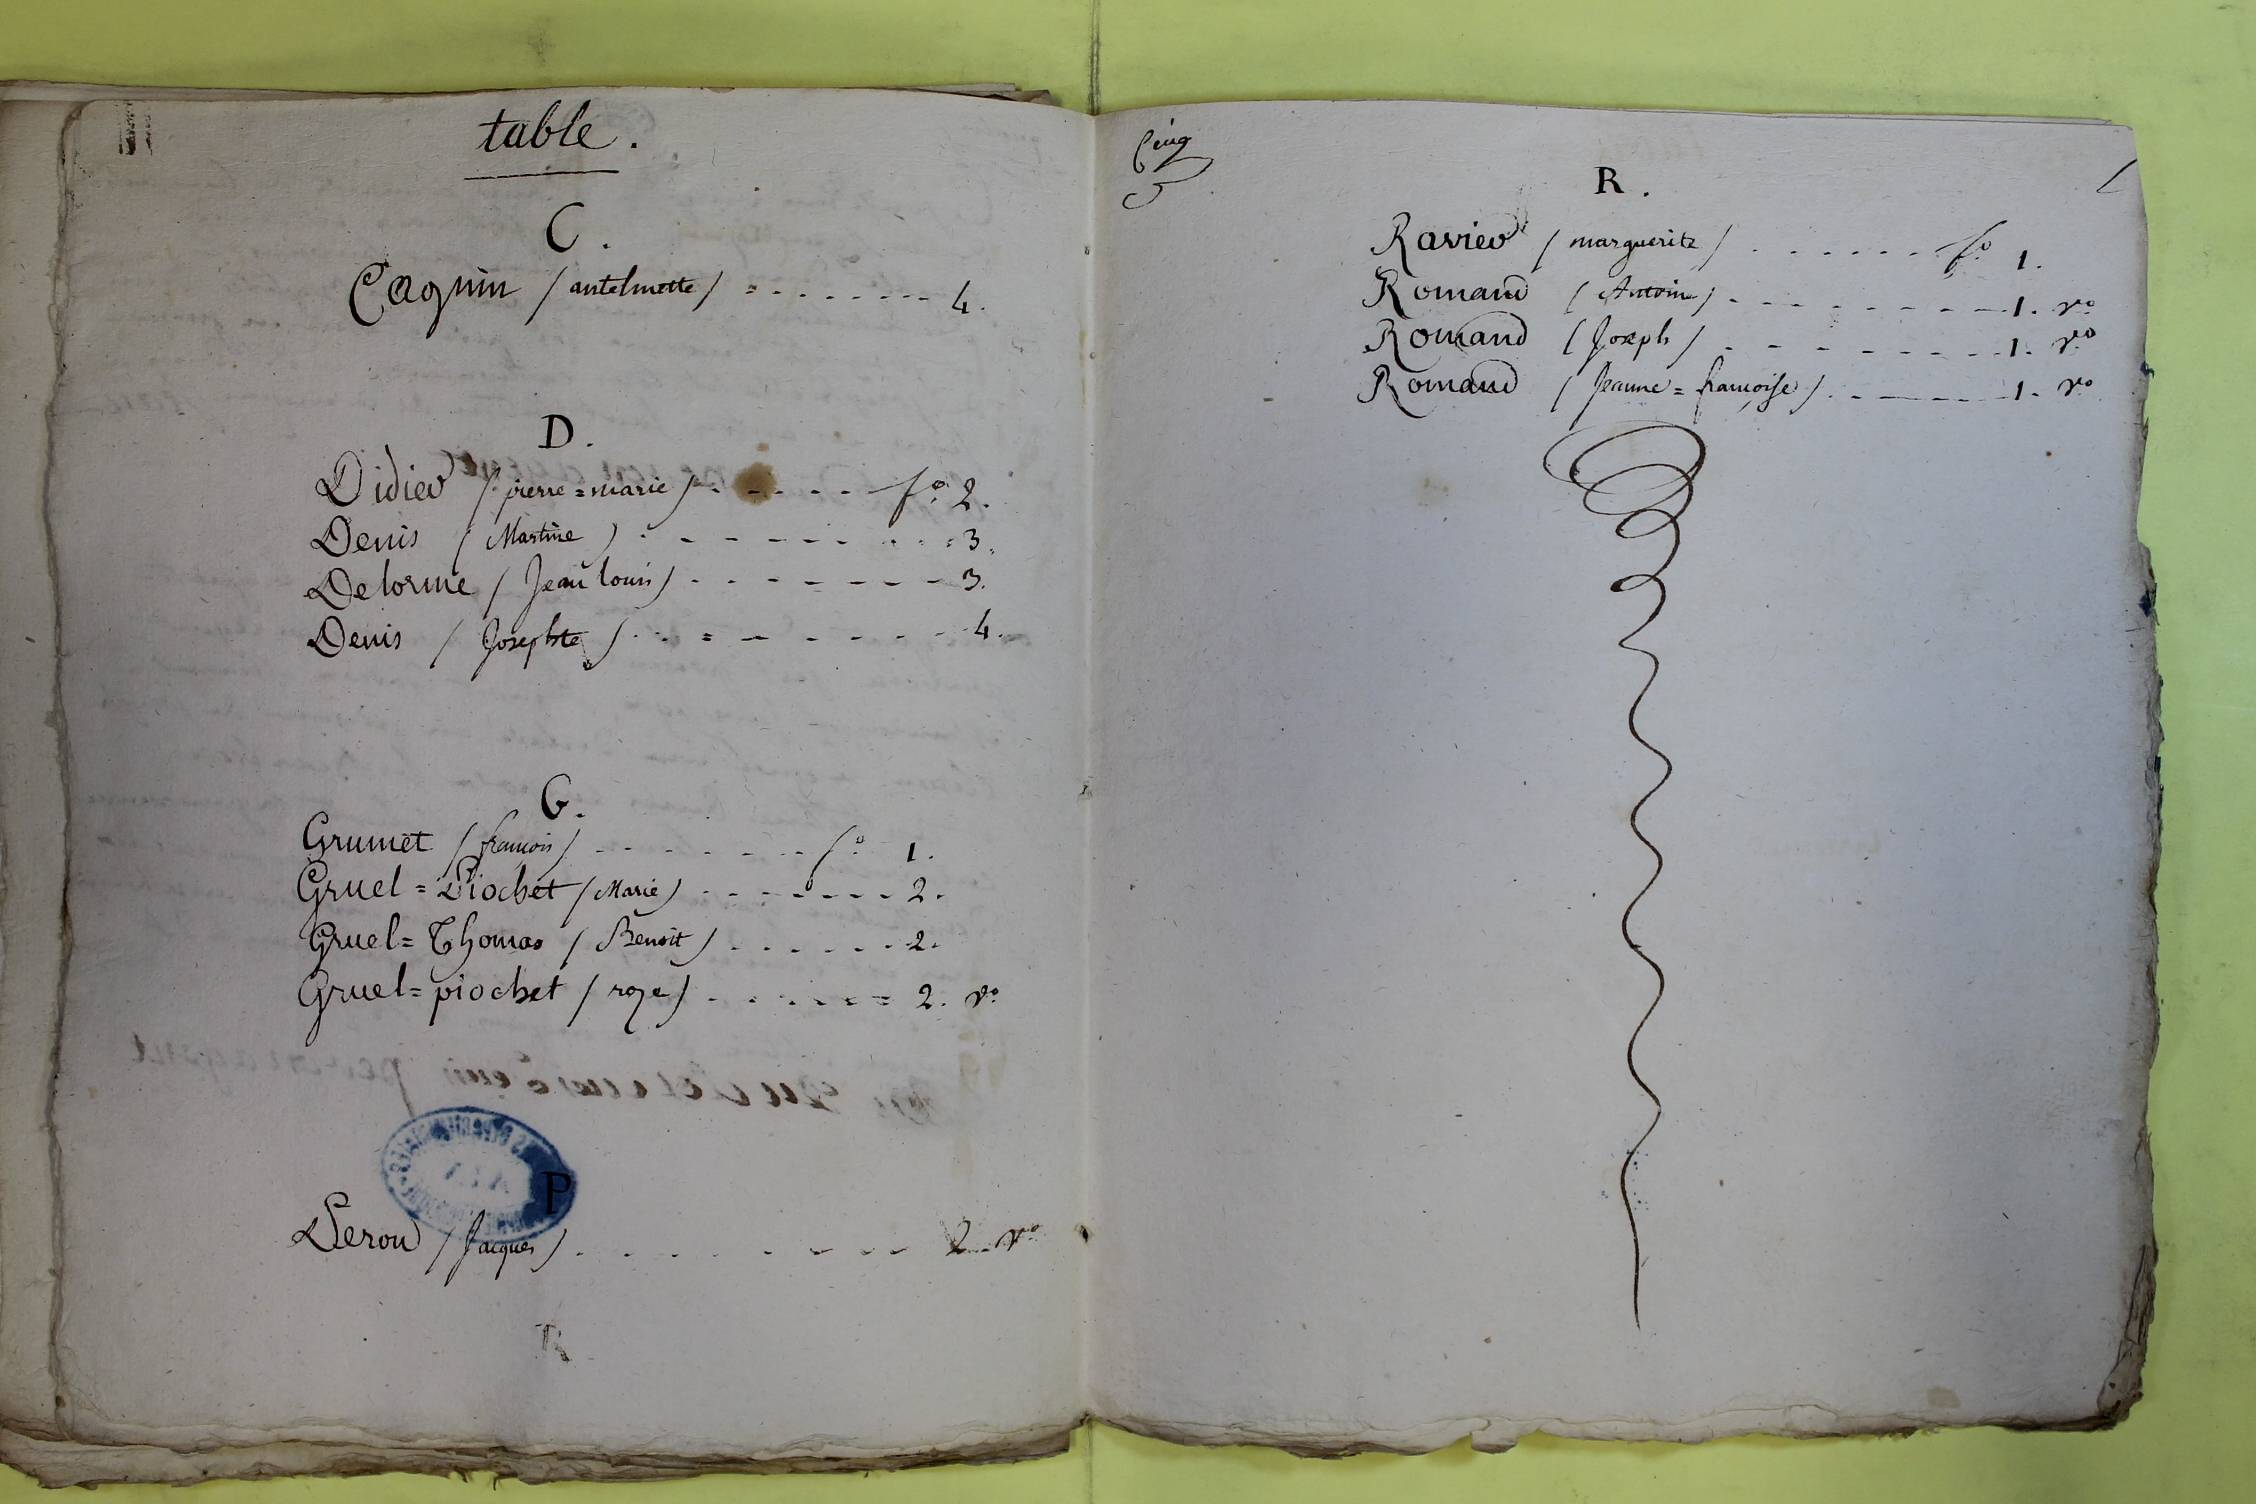 table.
C.
Caquin (antelmette) - - - - - - - - 4.
D.
Didier (pierre=marie) - - - - - - fo. 2.
Denis (Martine) - - - - - - - - 3.
Delorme (Jean louis) - - - - - - - 3.
Denis (Josephte) - - = - - - - - - 4.
G.
Grumet (francois) - - - - - - fo 1.
Gruel=Piochet (Marie) - - - - - - - 2.
Gruel=Thomas (Benoit) - - - - - - 2.
Gruel=piochet (roze) - - - - - - = 2. vo
P
Perou (Jacques) - - - - - - - - 2. vo
Cinq
5
R.
Ravier (marguerite) - - - - - - fo 1.
Romand (Antoine) - - - - - - - - 1. vo
Romand (Joseph) - - - - - - - - 1. vo
Romand (Jeanne=francoise) - - - - - 1. vo